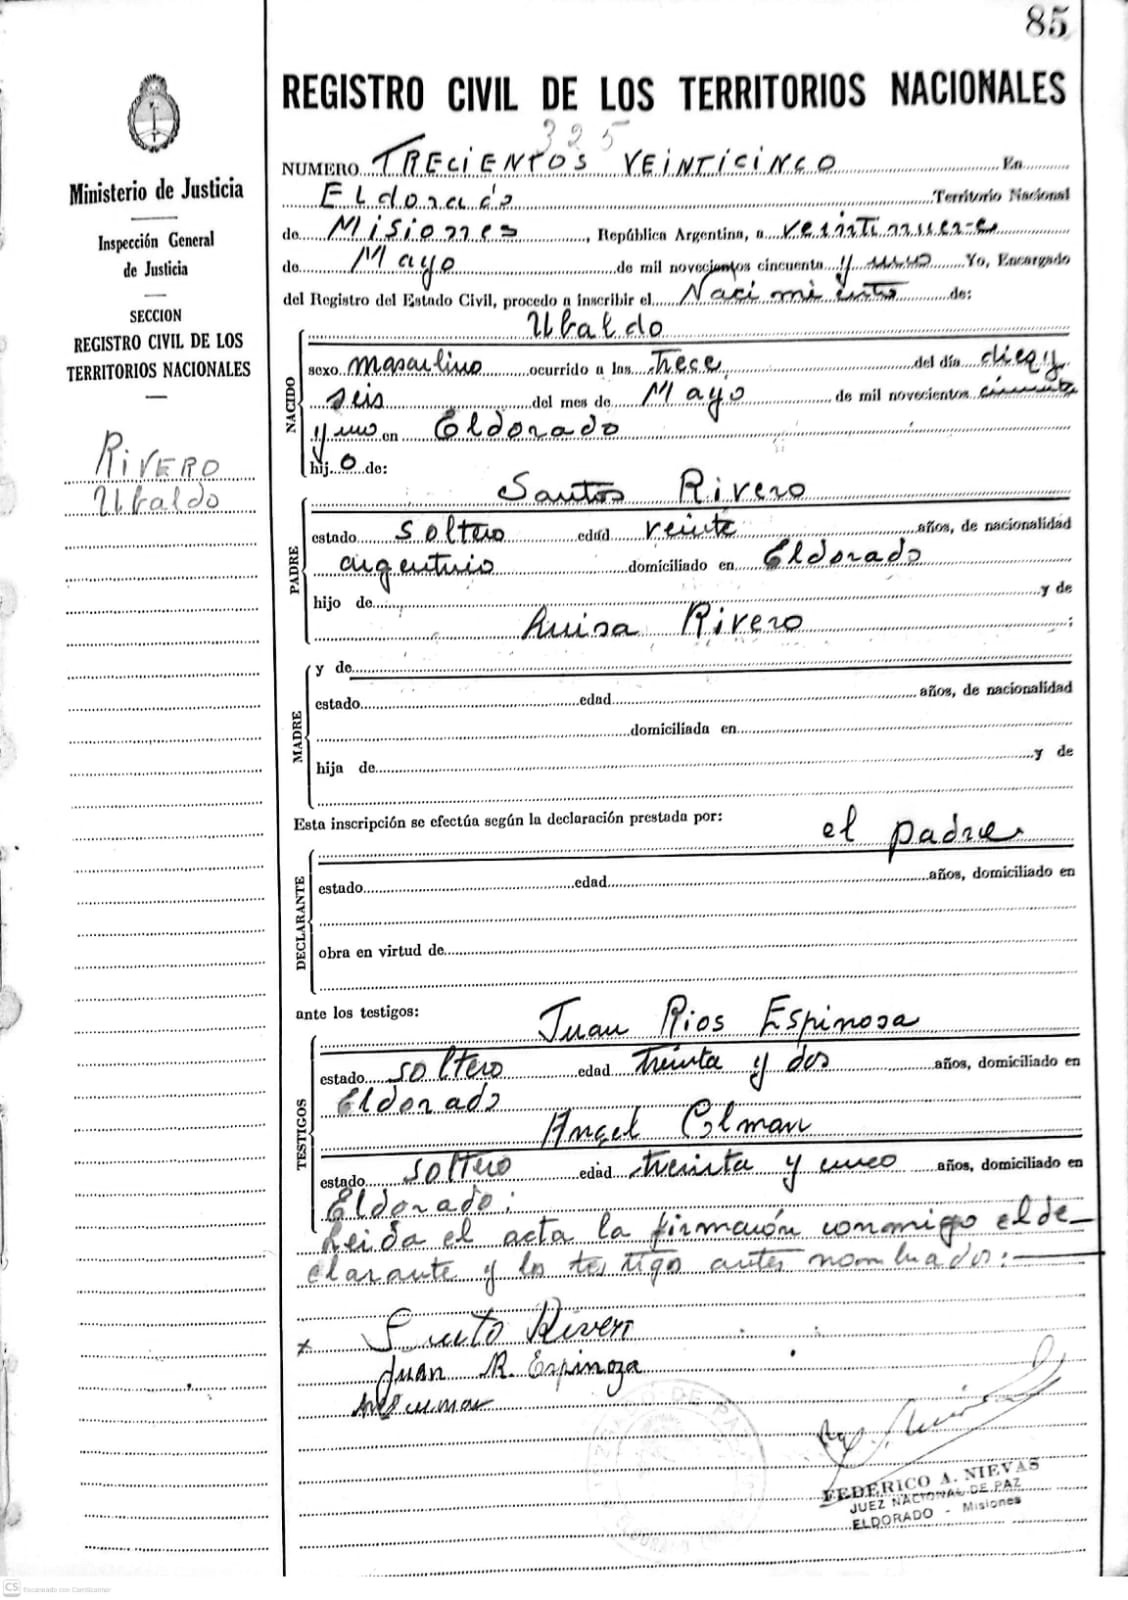 85
REGISTRO CIVIL DE LOS TERRITORIOS NACIONALES
325
NUMERO TRECIENTOS VEINTICINCO En
ELdorado Territorio Nacional
de Misiones, República Argentina, a veintinueve
de Mayo de mil novecientos cincuenta y uno Yo, Encargado
del Registro del Estado Civil, procedo a inscribir el Nacimiento de:
Ministerio de Justicia
Inspección General
de Justicia
SECCION
REGISTRO CIVIL DE LOS
TERRITORIOS NACIONALES
RIVERO
Ubaldo
NACIDO
Ubaldo
sexo masculino ocurrido a las Trece del día diez y
seis del mes de Mayo de mil novecientos cincuenta
y uno en Eldorado
hijo de:
PADRE
Santos Rivero
estado soltero edad veinte años, de nacionalidad
argentino domiciliado en Eldorado
hijo de y de
Luisa Rivero ;
MADRE
y de
estado edad años, de nacionalidad
domiciliada en
hija de y de
Esta inscripción se efectúa según la declaración prestada por: el padre
DECLARANTE
estado edad años, domiciliado en
obra en virtud de
ante los testigos: Juan Rios Espinosa
TESTIGOS
estado soltero edad treinta y dos años, domiciliado en
Eldorado
Angel Colman
estado soltero edad treinta y cinco años, domiciliado en
Eldorado:
Leida el acta la firmarón conmigo el de-
clarante y los testigos antes nombrados:
x Santo Rivero
Juan R. Espinoza
FEDERICO A. NIEVAS
JUEZ NACIONAL DE PAZ
ELDORADO - Misiones
CS Escaneado con CamScanner